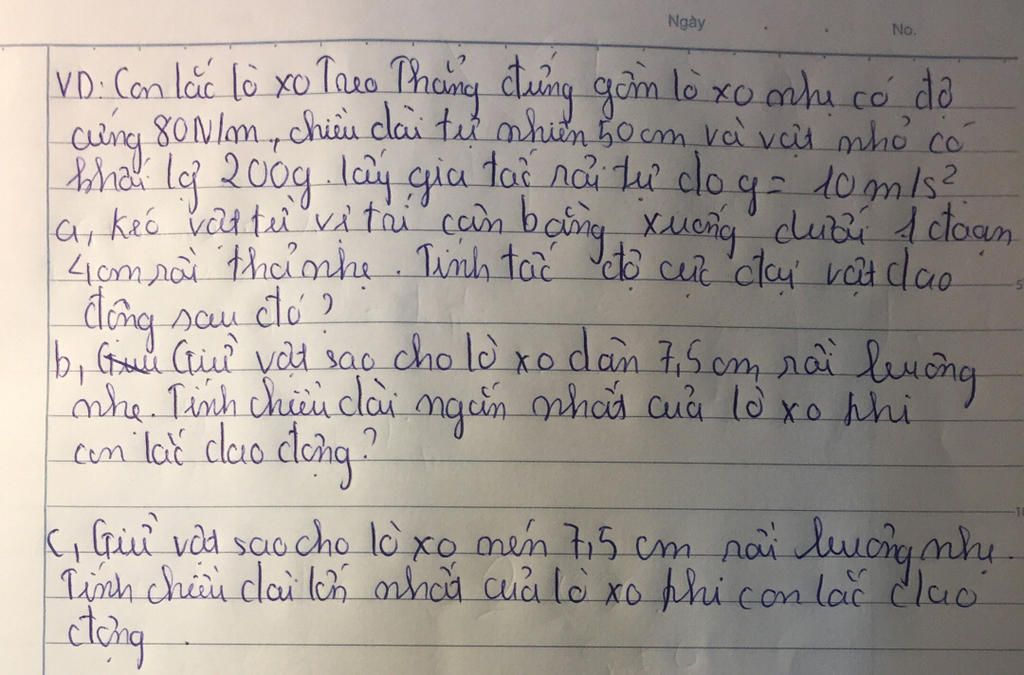 Ngày
No.
VD: Con lắc lò xo Treo Thẳng đứng gồm lò xo nhẹ có độ
cứng 80N/m, chiều dài tự nhiên 50cm và vật nhỏ có
khối lg 200g. lấy gia tốc rơi tự do g = 10m/s²
a, kéo vật từ vị trí cân bằng xuống dưới 1 đoạn
4cm rồi thả nhẹ. Tính tốc độ cực đại vật dao
động sau đó?
b, Giữ vật sao cho lò xo dãn 7,5cm rồi buông
nhẹ. Tính chiều dài ngắn nhất của lò xo khi
con lắc dao động?
c, Giữ vật sao cho lò xo nén 7,5 cm rồi buông nhẹ.
Tính chiều dai lớn nhất của lò xo khi con lắc dao
động.